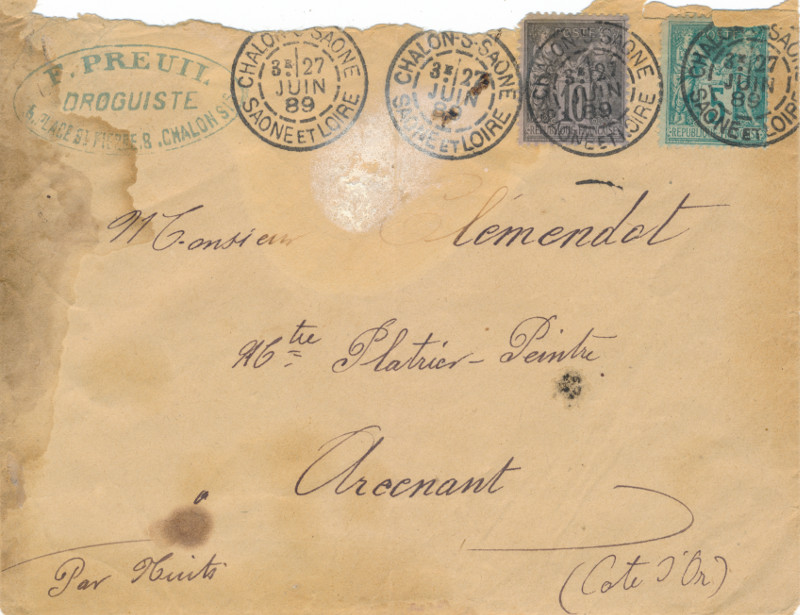 F. PREUIL
DROGUISTE
PLACE ST PIERRE, 8, CHALON S/S
CHALON-S-SAONE
3E 27
JUIN
89
SAONE ET LOIRE
CHALON-S-SAONE
3E 27
JUIN
89
SAONE ET LOIRE
CHALON-S-SAONE
3E 27
JUIN
89
SAONE ET LOIRE
10
CHALON-S-SAONE
3E 27
JUIN
89
SAONE ET LOIRE
5
REPUBLIQUE
Monsieur Clémendot
Mtre Platrier-Peintre
Arcenant
Par Nuits
(Cote d'Or)